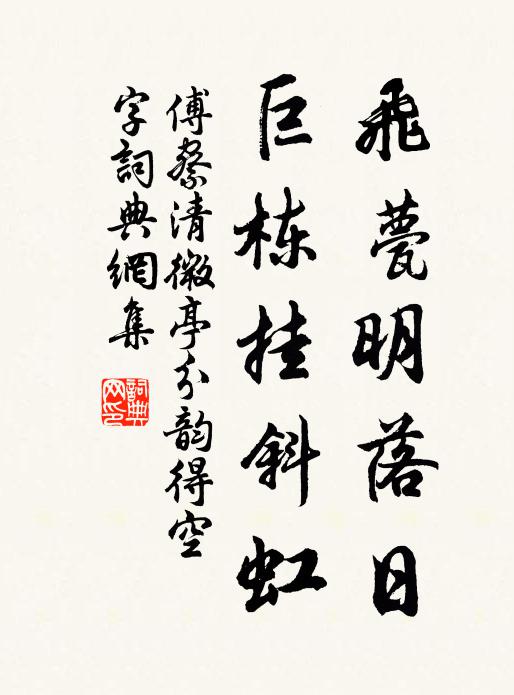 飛甍明落日
巨栋挂斜虹
傅察清微亭分韵得空
字詞典網集
詞典
网印